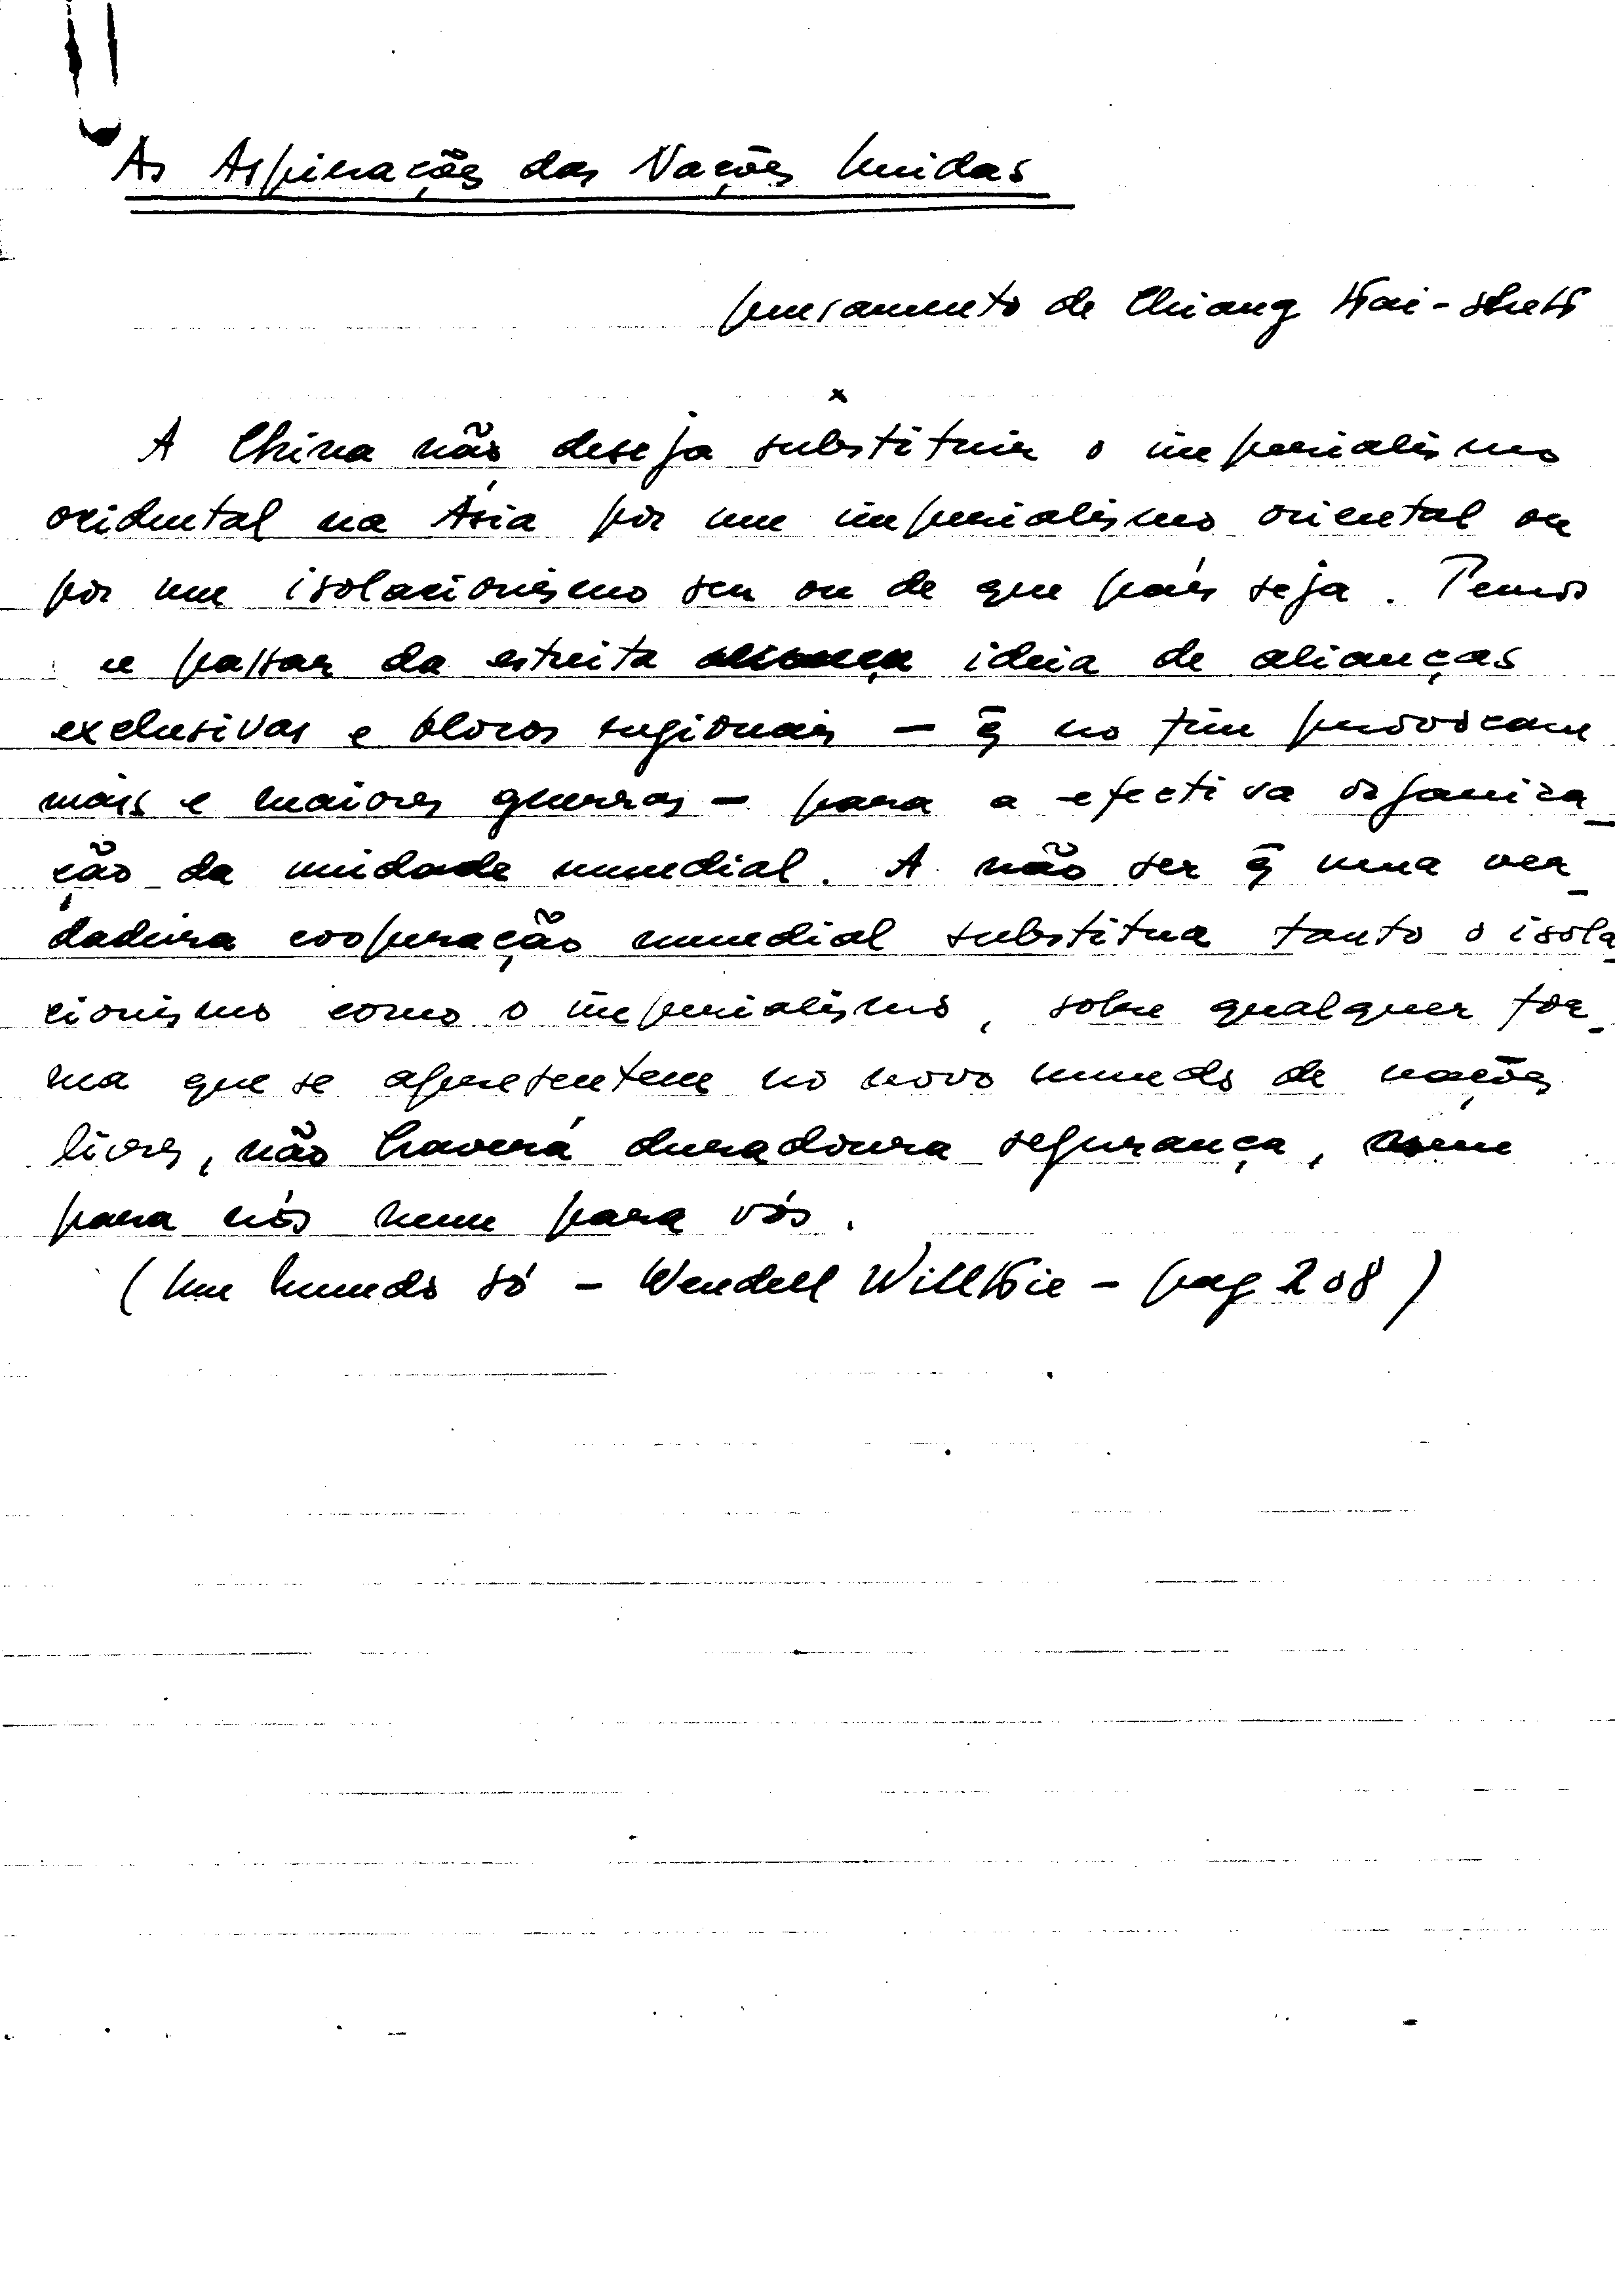 As Aspirações das Nações Unidas
pensamento de Chiang Kai-shek
x
A China não deseja substituir o imperialismo
ocidental na Ásia por um imperialismo oriental ou
por um isolacionismo seu ou de que país seja. Temos
e passar da estreita ideia de alianças
exclusivas e blocos regionais – q̃ no fim provocam
mais e maiores guerras – para a efectiva organiza_
ção da unidade mundial. A não ser q̃ uma ver_
dadeira cooperação mundial substitua tanto o isola_
cionismo como o imperialismo, sobre qualquer for_
ma que se apresentem no novo mundo de nações
livres, não haverá duradoura segurança, nem
para nós nem para vós.
(Um mundo só – Wendell Willkie – pag 208)